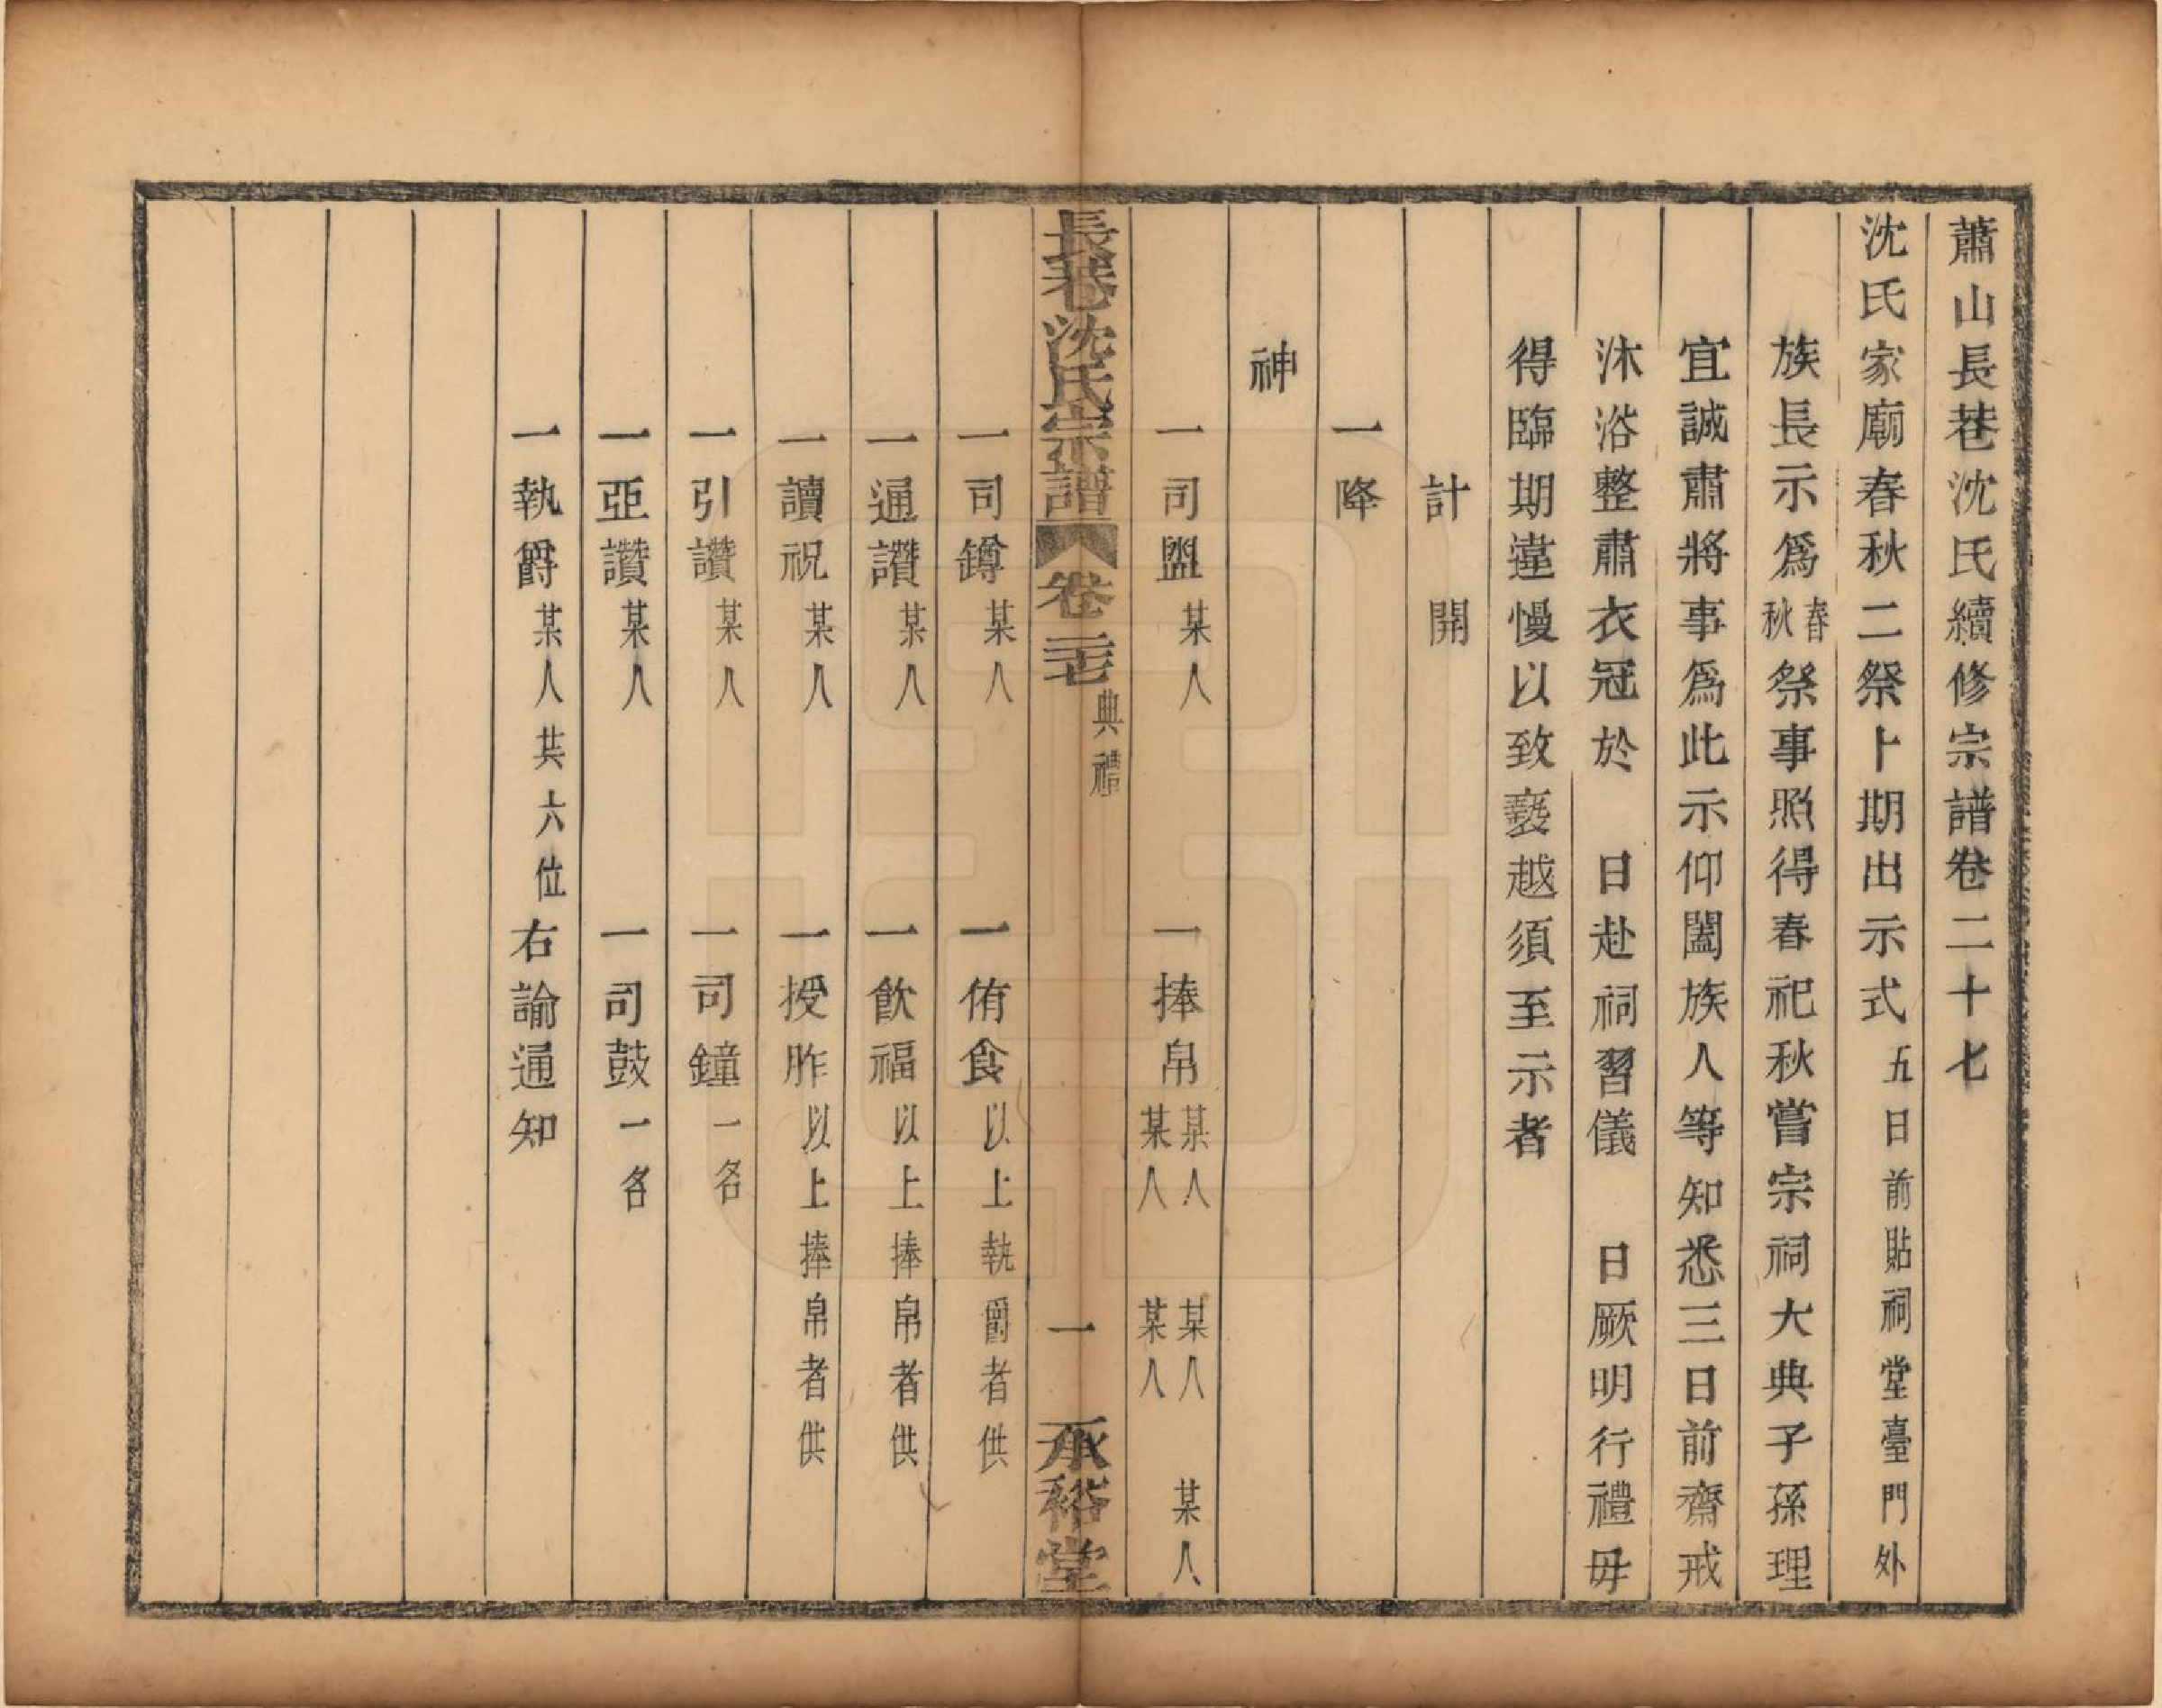 蕭山長巷沈氏續修宗譜卷二十七
沈氏家廟春秋二祭卜期出示式五日前貼祠堂臺門外
族長示爲春秋祭事照得春祀秋嘗宗祠大典子孫理
宜誠肅將事爲此示仰闔族人等知悉三日前齋戒
沐浴整肅衣冠於　日赴祠習儀　日厥明行禮毋
得臨期違慢以致褻越須至示者
計　開
一降
神
一司盥某人　一捧帛某人某人　某人某人　某人
長巷沈氏宗譜　卷二十七　典禮　一　承裕堂
一司鐏某人　一侑食以上執爵者供
一通讚某人　一飲福以上捧帛者供
一讀祝某人　一授胙以上捧帛者供
一引讚某人　一司鐘一名
一亞讚某人　一司鼓一名
一執爵某人共六位　右諭通知